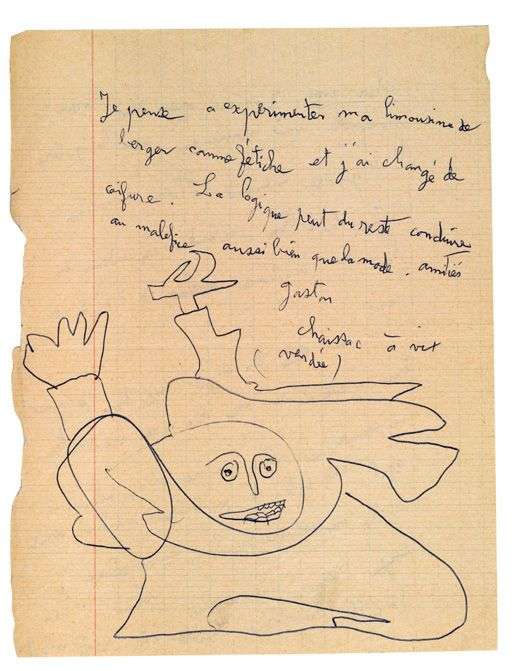 Je pense a experimenter ma limousine de
berger comme fétiche et j'ai changé de
coifure. La logique peut du reste conduire
au malefice aussi bien que la mode. amitiés
gaston
chaissac à vix
(vendée)